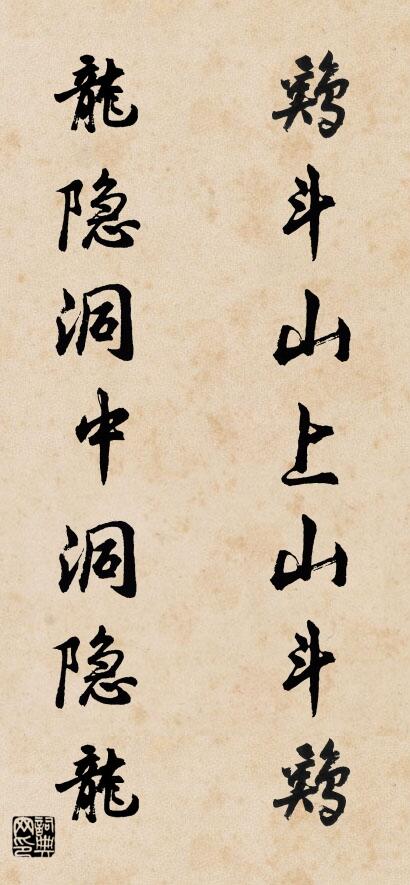 鷄斗山上山斗鷄
龍隐洞中洞隐龍
詞典网印